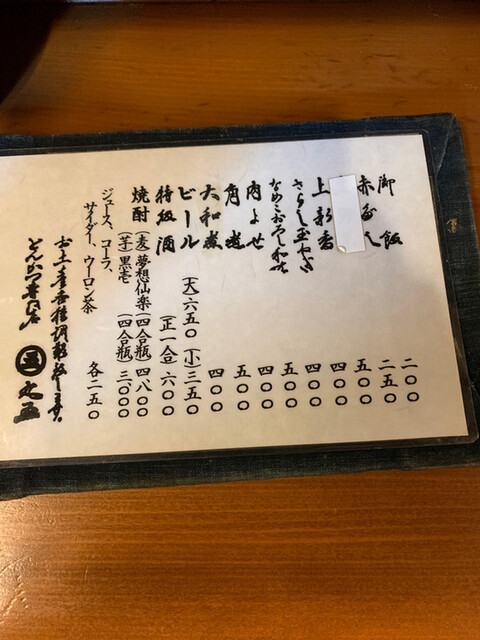 御飯 二〇〇
赤だし 二五〇
五〇〇
上新香 四〇〇
さらし玉ねぎ 四〇〇
なめこおろし和え 五〇〇
肉よせ 四〇〇
角煮 五〇〇
大和煮 四〇〇
ビール (大)六五〇 (小)三五〇
特級酒 (正一合) 六〇〇
焼酎 (麦)夢想仙楽(四合瓶)四八〇〇
(芋)黒壱 (四合瓶)三〇〇〇
ジュース、コーラ、
サイダー、ウーロン茶 各二五〇
お土産各種調製致します。
とんかつ専門店 五 丸五